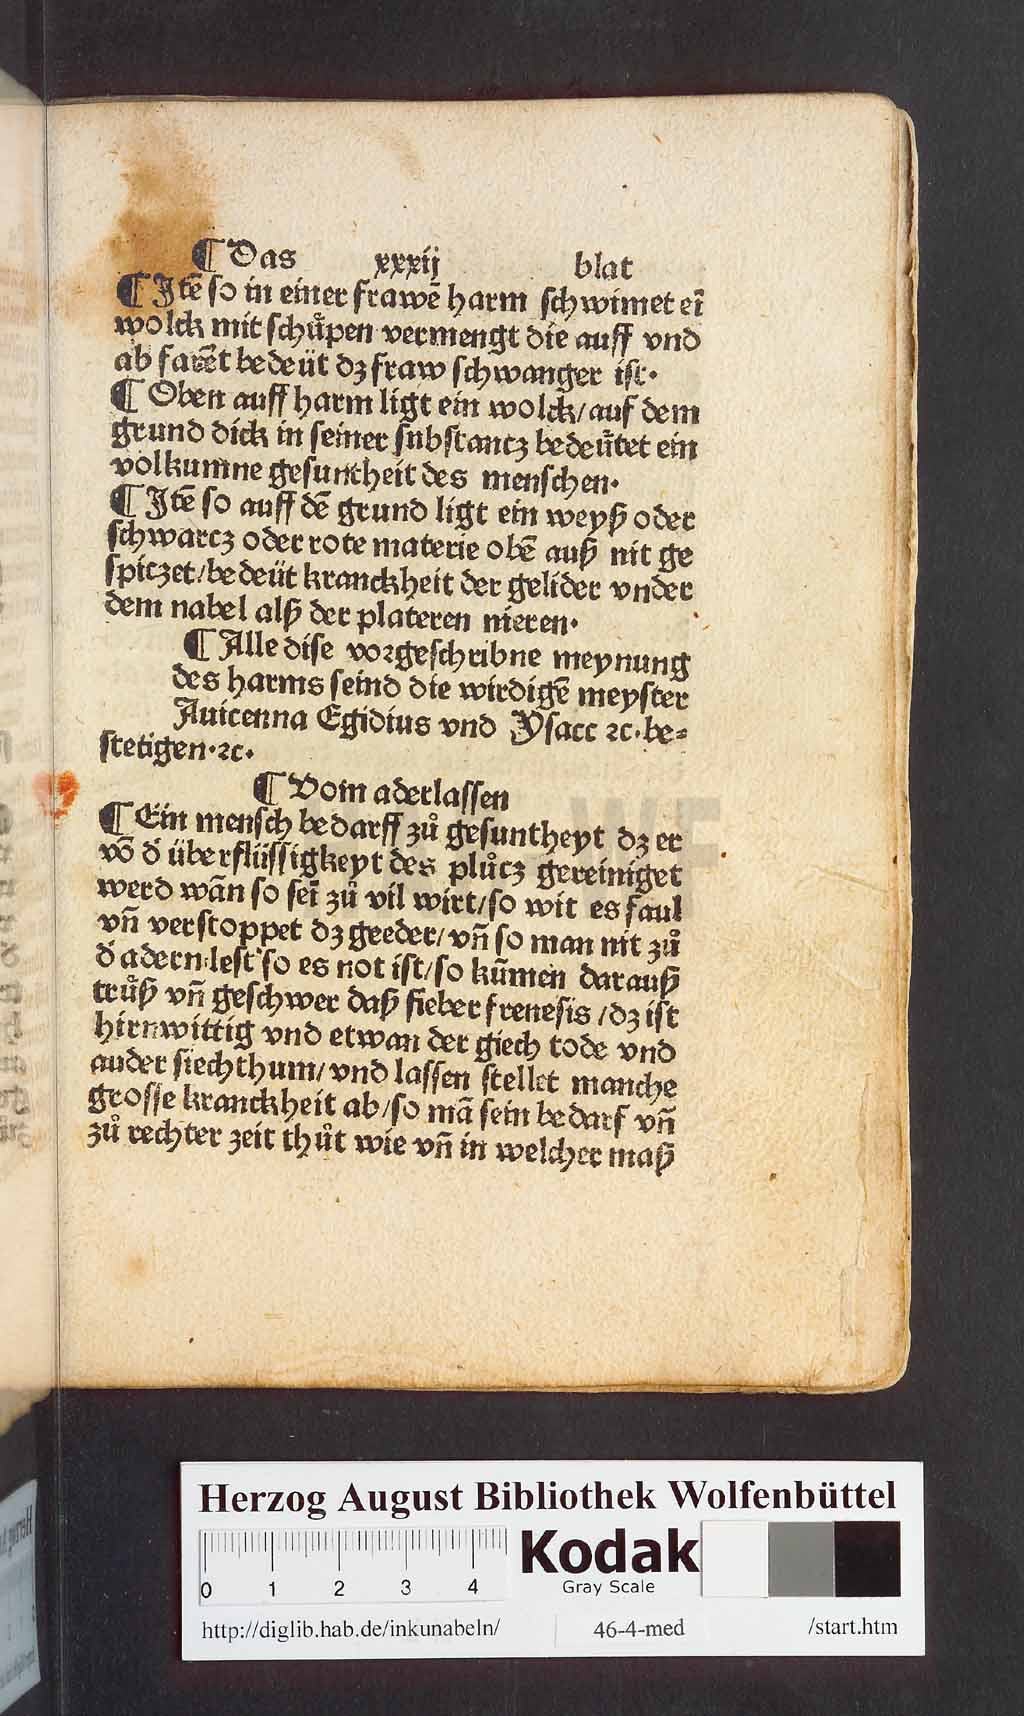 ¶ Das xxxij blat
¶ Itē so in einer frawē harm schwimet eī
wolck mit schuͤpen vermengt die auff vnd
ab farēt bedeüt dz fraw schwanger ist.
¶ Oben auff harm ligt ein wolck/auf dem
grund dick in seiner substantz bedeuͤtet ein
volkumne gesuntheit des menschen.
¶ Itē so auff dē grund ligt ein weyß oder
schwarcz oder rote materie obē auß nit ge
spiczet/bedeüt kranckheit der gelider vnder
dem nabel alß der plateren nieren.
¶ Alle dise vorgeschribne meynung
des harms seind die wirdigē meyster
Auicenna Egidius vnd Ysacc ꝛc.be⸗
stetigen.ꝛc.
¶ Vom aderlassen
¶ Ein mensch bedarff zuͦ gesuntheyt dz er
vō d̕ überflüssigkeyt des pluͦcz gereiniget
werd wān so seī zuͦ vil wirt/so wit es faul
vn̄ verstoppet dz geeder/vn̄ so man nit zuͦ
d̕ adern lest so es not ist/so kūmen darauß
truͤß vn̄ geschwer daß fieber frenesis/dz ist
hirnwittig vnd etwan der giech tode vnd
ander siechthum/vnd lassen stellet manche
grosse kranckheit ab/so mā sein bedarf vn̄
zuͦ rechter zeit thuͦt wie vn̄ in welcher maß
Herzog August Bibliothek Wolfenbüttel
0 1 2 3 4
Kodak
Gray Scale
http://diglib.hab.de/inkunabeln/ 46-4-med /start.htm